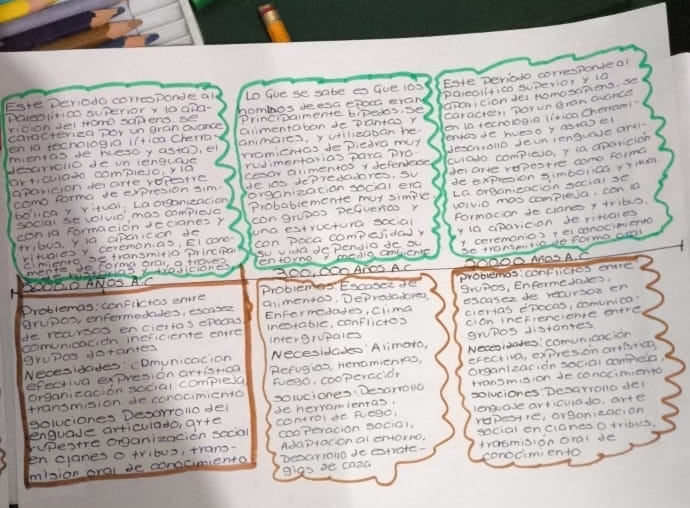 Este Periodo corresponde al
Paleolítico superior y la apa-
rición del Homo sapiens. se
caracteriza por un gran avance
en la tecnología lítica cherra-
mientas de hueso y asta), el
desarrollo de un lenguaje
articulado complejo, y la
aparición del arte rupestre
como forma de expresión sim-
bólica y ritual, La organizacion
social se volvió, mas complejo
con la formación de clanes y
tribus, y la aparición de
rituales y ceremonias, El cono-
cimiento se transmitía Principal
mente de forma oral, a través
de historias y tradiciones
A.C
Problemas: conflictos entre
grupos, enfermedades, escasez
de recursos en ciertas epocas
comunicación ineficiente entre
grupos distantes
Necesidades: comunicacion
efectiva expresión artística
organización social compleja,
transmisión de conocimiento
soluciones Desarrollo del
lenguaje articulado, arte
rupestre organización social
en clanes o tribus, trans-
mision oral de conocimiento
Lo que se sabe es Que los
de esa epoca eran
Principalmente bípedos. se
alimentaban de Plantas y
animales, y utilizaban he-
rramientas de Piedra muy
rudimentarias para Pro-
cesar alimentos y defenderse
de los depredadores. su
organización social era
Probablemente muy simple,
con grupos pequeñas y
una estructura social
con Poca complejidad y
su vida dependia de su
entorno y medio ambiente
300,000 Años A.C
Problemas: Escasez de
alimentos, Depredadores,
Enfermedades, clima
inestable, conflictos
intergrupales
Necesidades: Alimato,
Refugios, Herramientas,
fuego, cooperación
soluciones: Desarrollo
de herramientas,
control de fuego,
cooperación social,
Adaptación al entorno,
Desarrollo de estrate-
gias de caza
Este Periodo corresponde al
Paleolítico superior y la
aparicion del Homo sapiens. se
caracteri por un gran avance
en la tecnología lítica cherrami-
entas de hueso y astas) el
desarrollo de un lenguaje arti-
culado complejo, y la aparición
del arte rupestre como forma
de expresión simbólica y ritual.
La organización social se
volvio mas compleja, con la
formación de clanes y tribus,
y la aparición de rituales
y ceremonias, y el conocimiento
se transmitia de forma oral
Años A.C
Problemas: conflictos entre
grupos, Enfermedades,
escasez de recursos en
ciertas epocas, comunica-
ción entre
grupos distantes.
Necesidades: comunicación
efectiva, expresión artística,
organización social compleja,
transmisión de conocimiento
soluciones: Desarrollo del
lenguaje articulado, arte
rupestre, organización
social en clanes o tribus,
trasmisión oral de
conocimiento